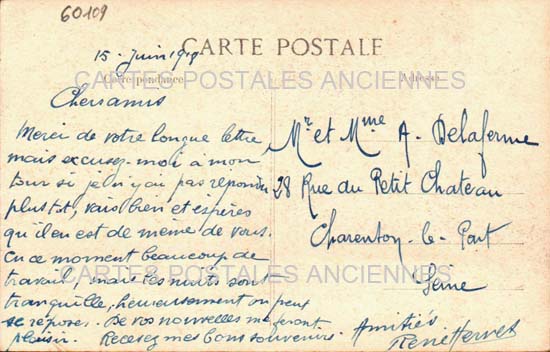 60109
15. Juin 1918
CARTE POSTALE
CARTES POSTALES ANCIENNES
Correspondance
Adresse
Chers amis
Merci de votre longue lettre
mais excusez-moi à mon
tour si je n'y ai pas répondu
plus tôt, vais bien et espères
qu'il en est de même de vous.
En ce moment beaucoup de
travail, mais les nuits sont
tranquille, heureusement on peut
se reposer. De vos nouvelles me feront
plaisir. Recevez mes bons souvenirs.
Mr et Mme A. Delaferme
28 Rue du Petit Chateau
Charenton-le-Pont
Seine
CARTES POSTALES ANCIENNES
Amitiés
René Hervet